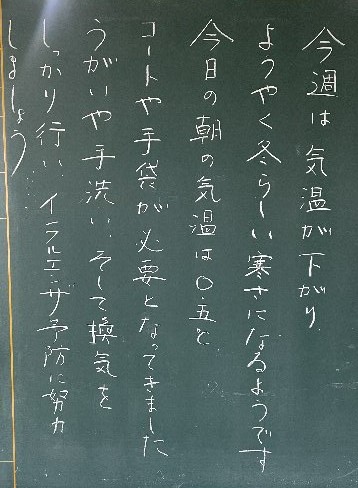 今週は気温が下がり
ようやく冬らしい寒さになるようです
今日の朝の気温は〇.五℃
コートや手袋が必要となってきました
うがいや手洗い、そして換気を
しっかり行い、インフルエンザ予防に努力
しましょう